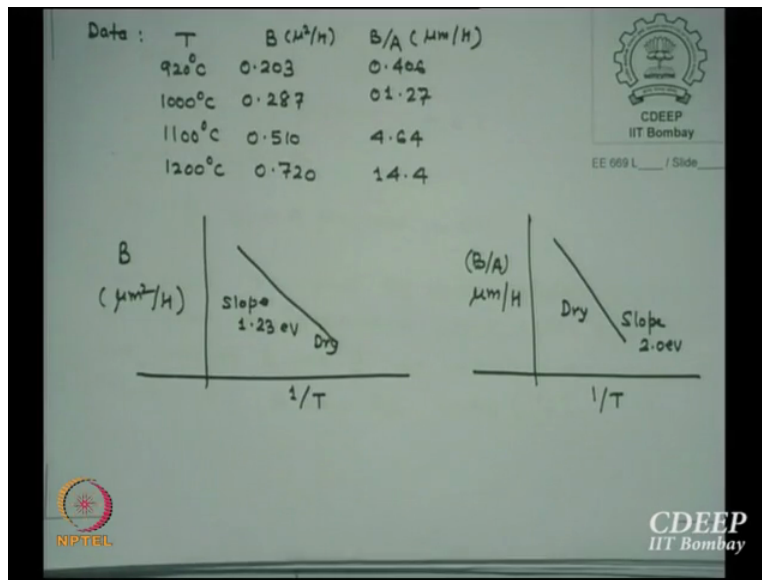 Data : T B (μ²/H) B/A (μm/H)
920°C 0.203 0.406
1000°C 0.287 01.27
1100°C 0.510 4.64
1200°C 0.720 14.4
CDEEP
IIT Bombay
EE 669 L____ / Slide____
B
(μm²/H)
Slope
1.23 ev
Dry
1/T
(B/A)
μm/H
Dry
Slope
2.0ev
1/T
NPTEL
CDEEP
IIT Bombay